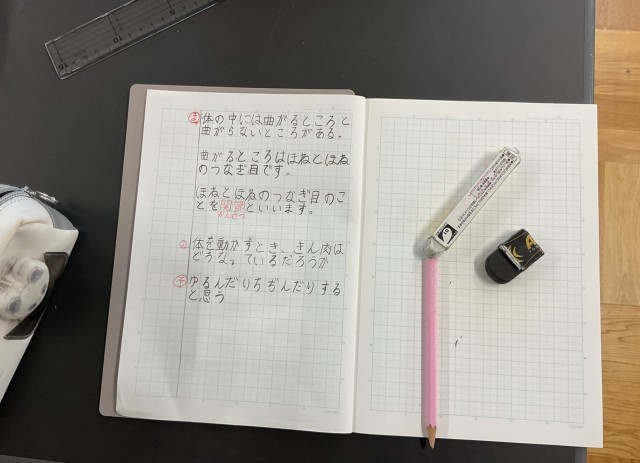 ま 体の中には曲がるところと
曲がらないところがある。
曲がるところはほねとほね
のつなぎ目です。
ほねとほねのつなぎ目のこ
とを関節といいます。
かんせつ
体を動かすとき、きん肉は
どうなっているだろうか
予 ゆるんだりちぢんだりする
と思う